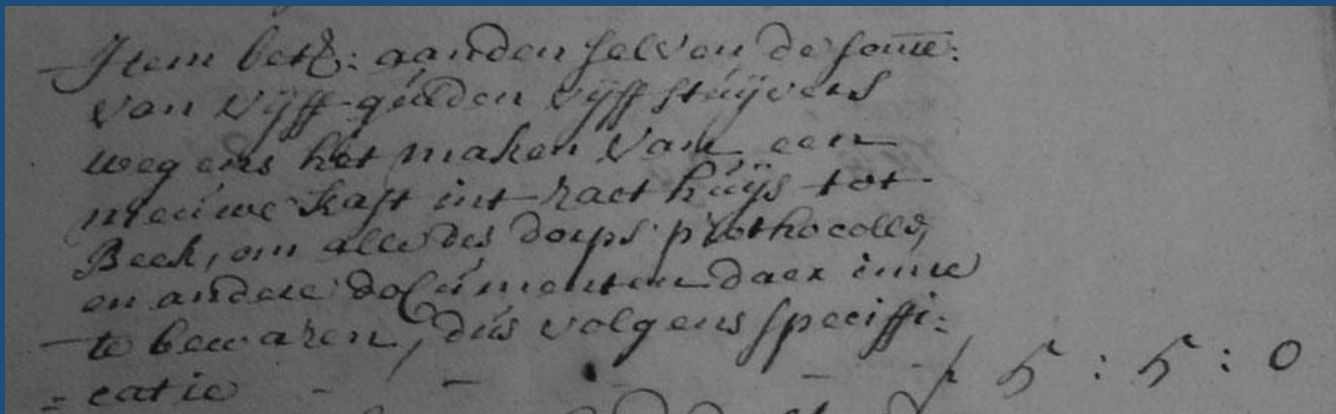 Item bet: aan den selven de some:
van vijff gulden vijff stuijvers
wegens het maken van een
nieuwe kast int raet huijs tot
Beek, om alle des dorps prothocolle,
en andere documenten daer inne
te bewaren, dus volgens speciffi:
=catie - - - - f 5 : 5 : 0